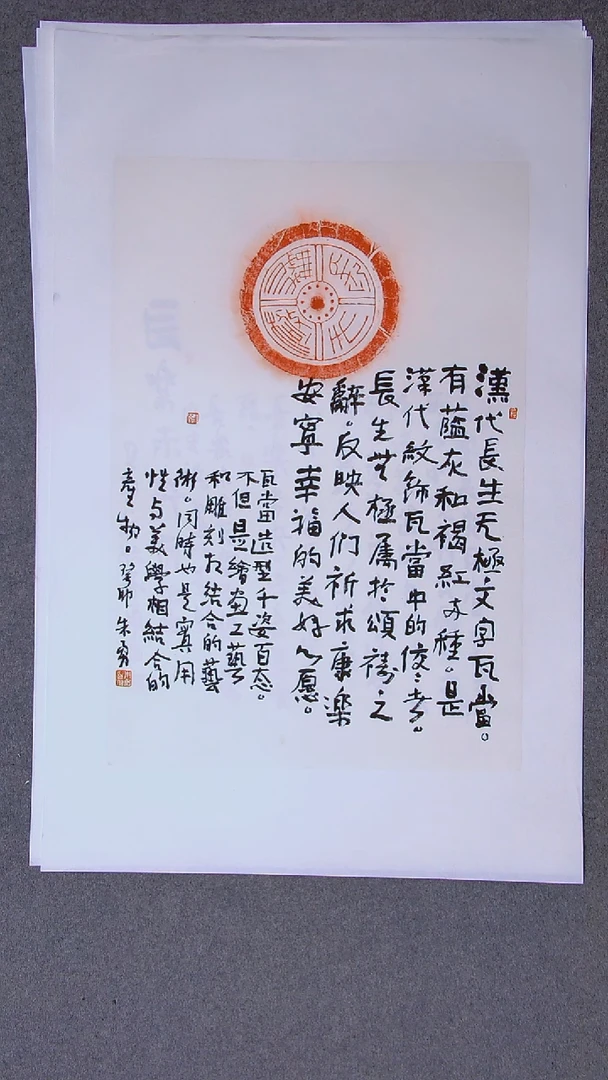 漢代長生无極文字瓦當。
有蘊灰和褐紅两種。是
漢代紋飾瓦當中的佼佼者。
長生無極屬於頌禱之
辭。反映人们祈求康樂
安寧幸福的美好心愿。
瓦當造型千姿百态。
不但是繪畫工藝
和雕刻相结合的藝
術。同時也是實用
性与美學相結合的
產物。癸卯 朱勇